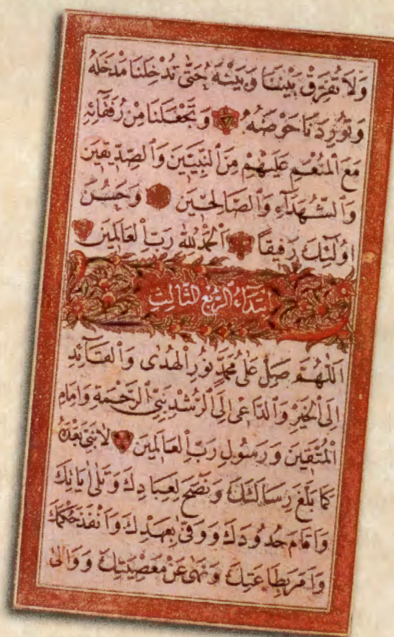 وَلَا تُفَرِّقْ بَيْنَنَا وَبَيْنَهُ حَتَّى تُدْخِلَنَا مَدْخَلَهُ
وَتُورِدَنَا حَوْضَهُ وَتَجْعَلَنَا مِنْ رُفَقَائِهِ
مَعَ الْمُنْعَمِ عَلَيْهِمْ مِنَ النَّبِيِّينَ وَالصِّدِّيقِينَ
وَالشُّهَدَاءِ وَالصَّالِحِينَ وَحَسُنَ
أُولَئِكَ رَفِيقًا اَلْحَمْدُ لِلَّهِ رَبِّ الْعَالَمِينَ
اِبْتِدَاءُ الرُّبْعِ الثَّالِثِ
اَللَّهُمَّ صَلِّ عَلَى مُحَمَّدٍ نُورِ الْهُدَى وَالْقَائِدِ
إِلَى الْخَيْرِ وَالدَّاعِي إِلَى الرُّشْدِ نَبِيِّ الرَّحْمَةِ وَإِمَامِ
الْمُتَّقِينَ وَرَسُولِ رَبِّ الْعَالَمِينَ لَا نَبِيَّ بَعْدَهُ
كَمَا بَلَّغَ رِسَالَتَكَ وَنَصَحَ لِعِبَادِكَ وَتَلَى آيَاتِكَ
وَأَقَامَ حُدُودَكَ وَوَفَّى بِعَهْدِكَ وَأَنْفَذَ حُكْمَكَ
وَأَمَرَ بِطَاعَتِكَ وَنَهَى عَنْ مَعْصِيَتِكَ وَوَالَى